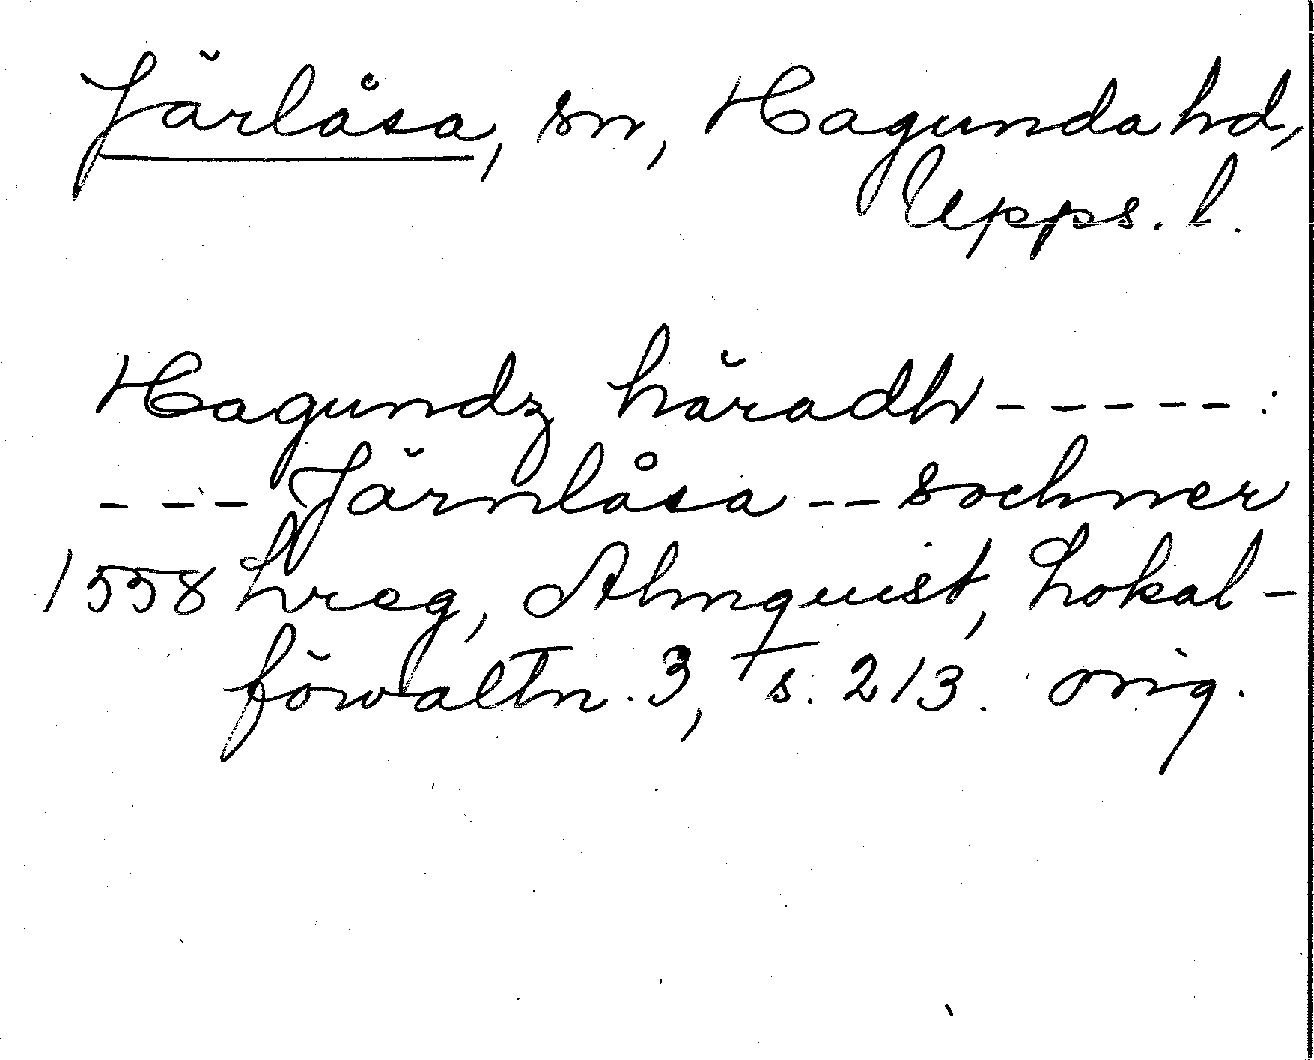 Järlåsa, sn, Hagunda hd,
Upps. l.
Hagundz häradh ----- :
--- Järnlåsa -- sochner
1558 Lreg, Almquist, Lokal-
förvaltn. 3, s. 213. orig.